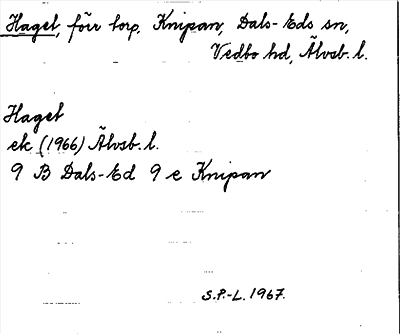 Haget, förr torp, Knipan, Dals-Eds sn,
Vedbo hd, Älvsb. l.
Haget
ek (1966) Älvsb. l.
9 B Dals-Ed 9 e Knipan
S.P.-L. 1967.